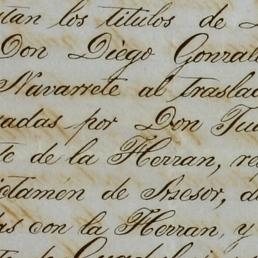 tan los titulos de
Don Diego Gonzal
Navarrete al traslad
adas por Don Jua
te de la Herran, re
ictamen de Asesor, d
as con la Herran, y